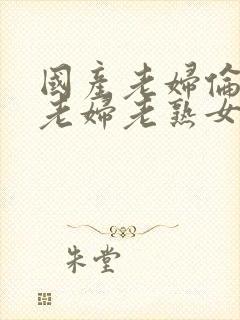 國產老婦倫
老婦老熟女
朱堂